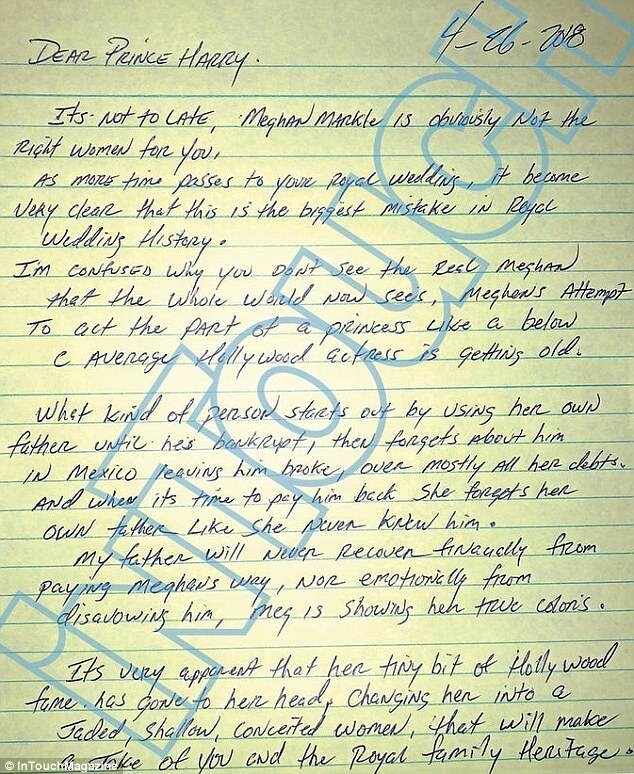 4-26-2018
DEAR PRINCE HARRY.
Its not to LATE, Meghan Markle is obviously Not the
Right women for you,
As more time passes to your Royal wedding, it become
very clear that this is the biggest mistake in Royal
Wedding History.
I'm confused why you Don't see the Real Meghan
that the whole world Now sees, Meghan's Attempt
To act the PART of a princess Like a below
C Average Hollywood actress is getting old.
What kind of person starts out by using her own
father until he's bankrupt, then forgets about him
IN Mexico leaving him broke, over mostly all her debts.
And when its time to pay him back She forgets her
own father Like She Never Knew him.
My father will Never Recover finacially from
paying Meghans way, NOR emotionally from
disavowing him, Meg is Showing her true colors.
It's very apparent that her tiny bit of Hollywood
fame has gone to her head, Changing her into a
Jaded, Shallow, conceited women, that will make
a Joke of you and the Royal family Heritage.
InTouch
© InTouchMagazine